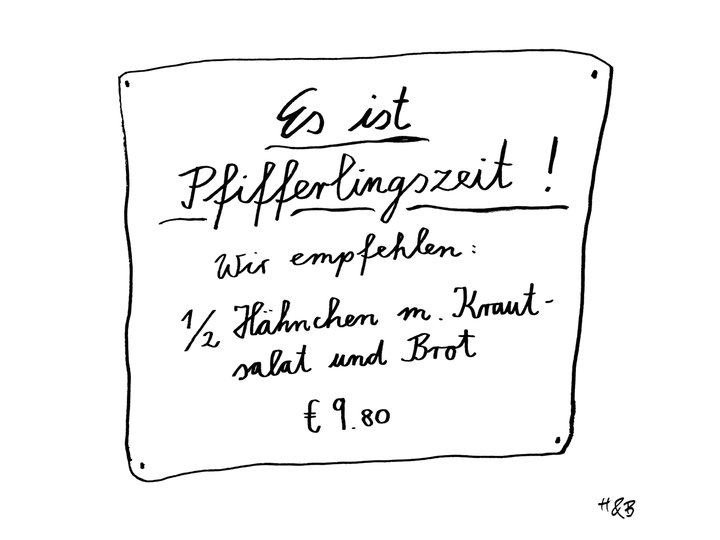 Es ist
Pfifferlingszeit !
Wir empfehlen:
1/2 Hähnchen m. Kraut-
salat und Brot
€ 9.80
H&B